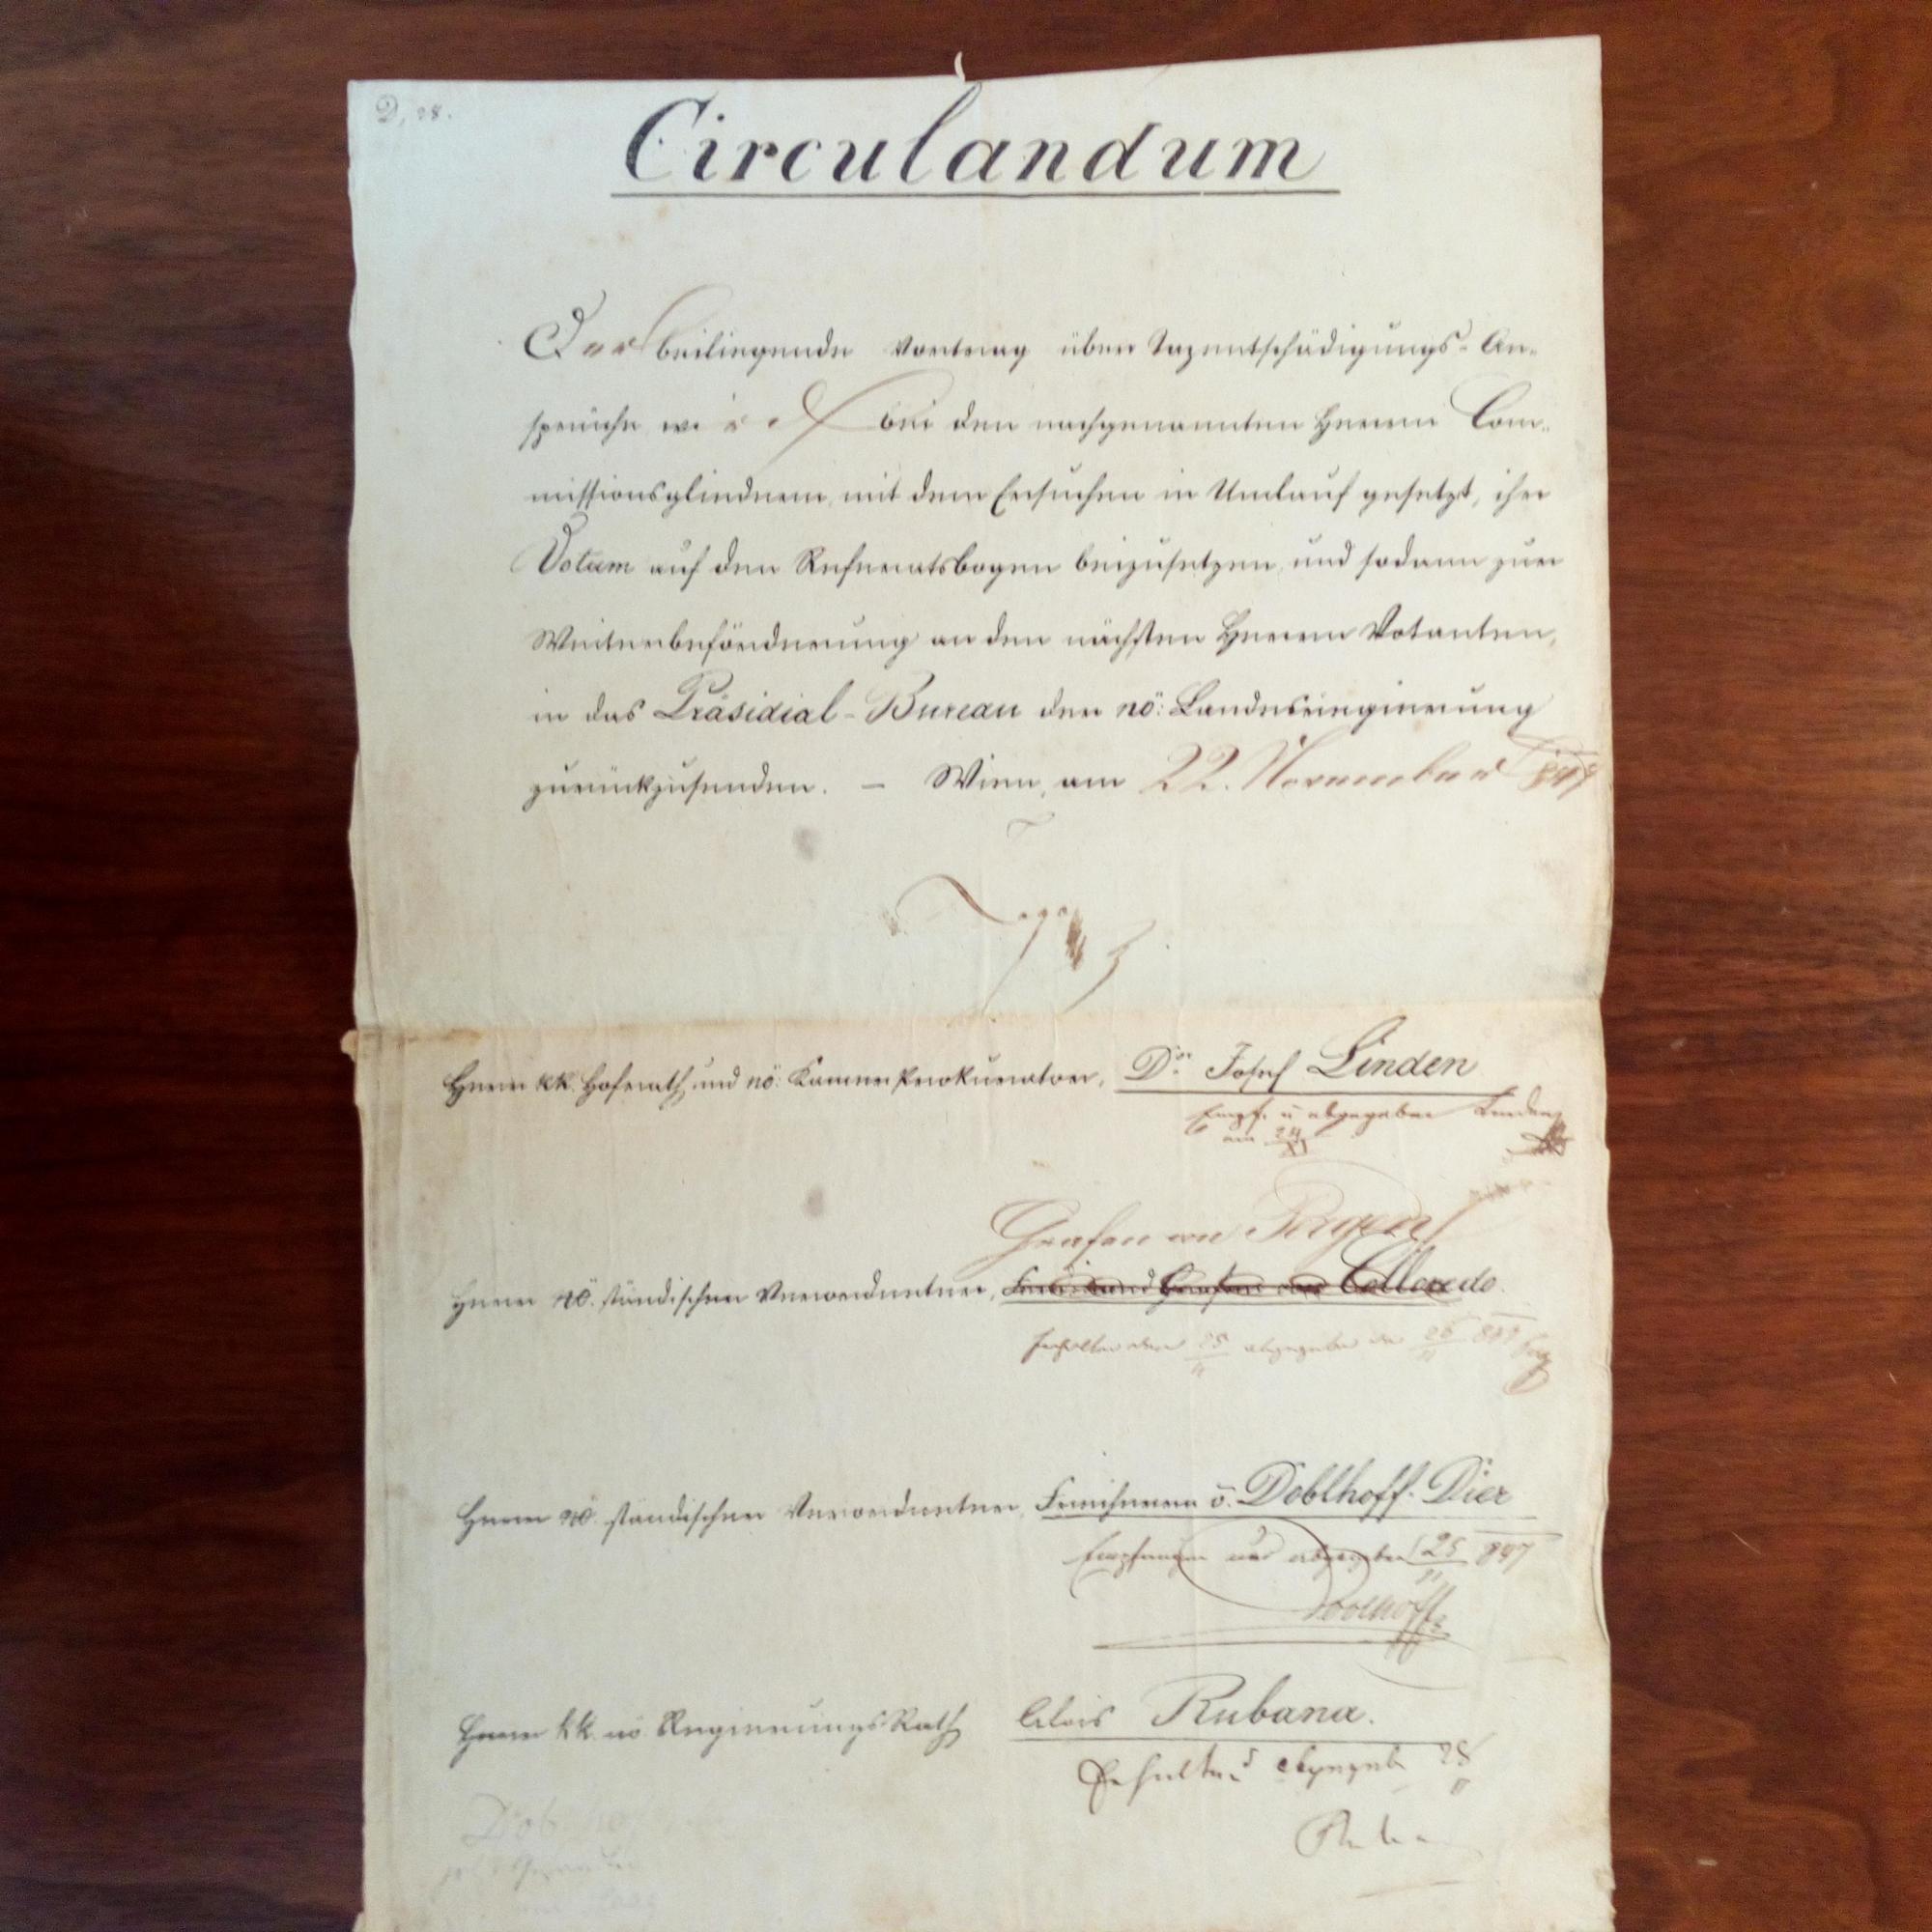 D, 28.
Circulandum
Der beiliegende Vortrag über Tazentschädigungs-An-
sprüche wird bei den nachgenannten Herrn Com-
missionsgliedern, mit dem Ersuchen in Umlauf gesetzt, ihr
Votum auf den Referatsbogen beizusetzen und sodann zur
Weiterbeförderung an den nächsten Herrn Votanten,
in das Präsidial-Bureau der nö: Landesregierung
zurückzusenden. – Wien, am 22. November 847
Herrn kk. Hofrath und nö: Kammer Prokurator, Dr. Josef Linden
Empf. u abgegeben Linden
am 24/XI
Grafen von Pergen
Herrn nö. ständischer Verordneter, Ferdinand Grafen von Colloredo.
Erhalten den 25/11 abgegeben den 26/11 847
Herrn nö. ständischer Verordneter Freiherrn v. Doblhoff-Dier
Empfangen und abgegeben 25/11 847
Doblhoff
Herrn kk. nö Regierungs Rath Alois Rubana.
Erhalten u abgegeb 28/11